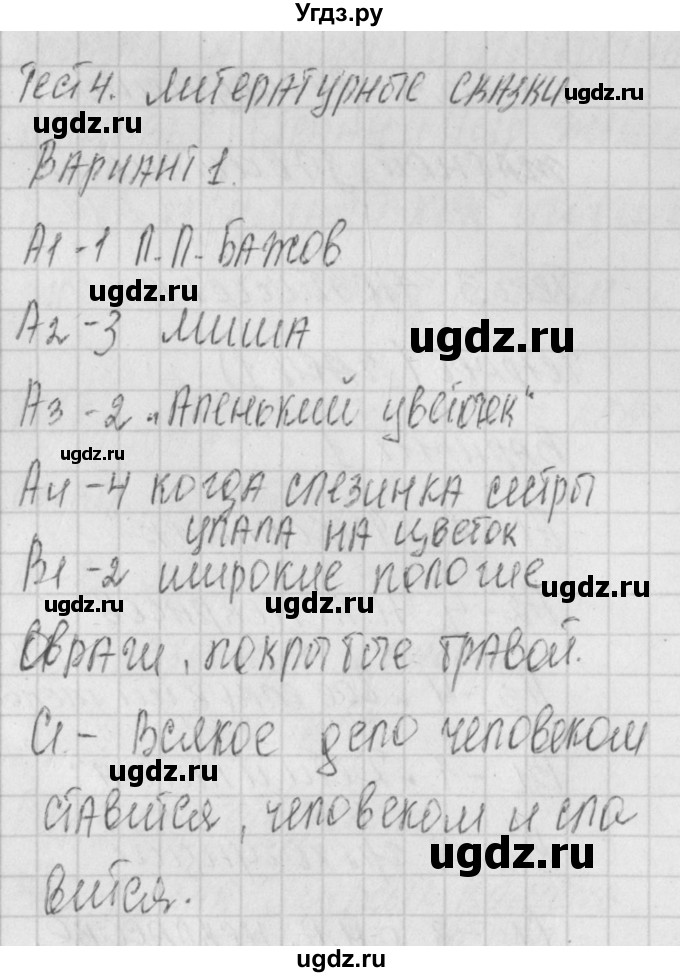 Угдз.ру
Тест 4. Литературные сказки.
ugdz.ru
ugdz.ru
Вариант 1.
А1 - 1 П.П. Бажов
ugdz.ru
А2 - 3 Миша
ugdz.ru
А3 - 2 „Аленький цветочек“
ugdz.ru
А4 - 4 когда слезинка сестры
упала на цветок
В1 - 2 широкие пологие
ugdz.ru
ugdz.ru
ugdz.ru
овраги, покрытые травой.
С1 - Всякое дело человеком
ugdz.ru
ставится, человеком и сла
ugdz.ru
вится.
ugdz.ru